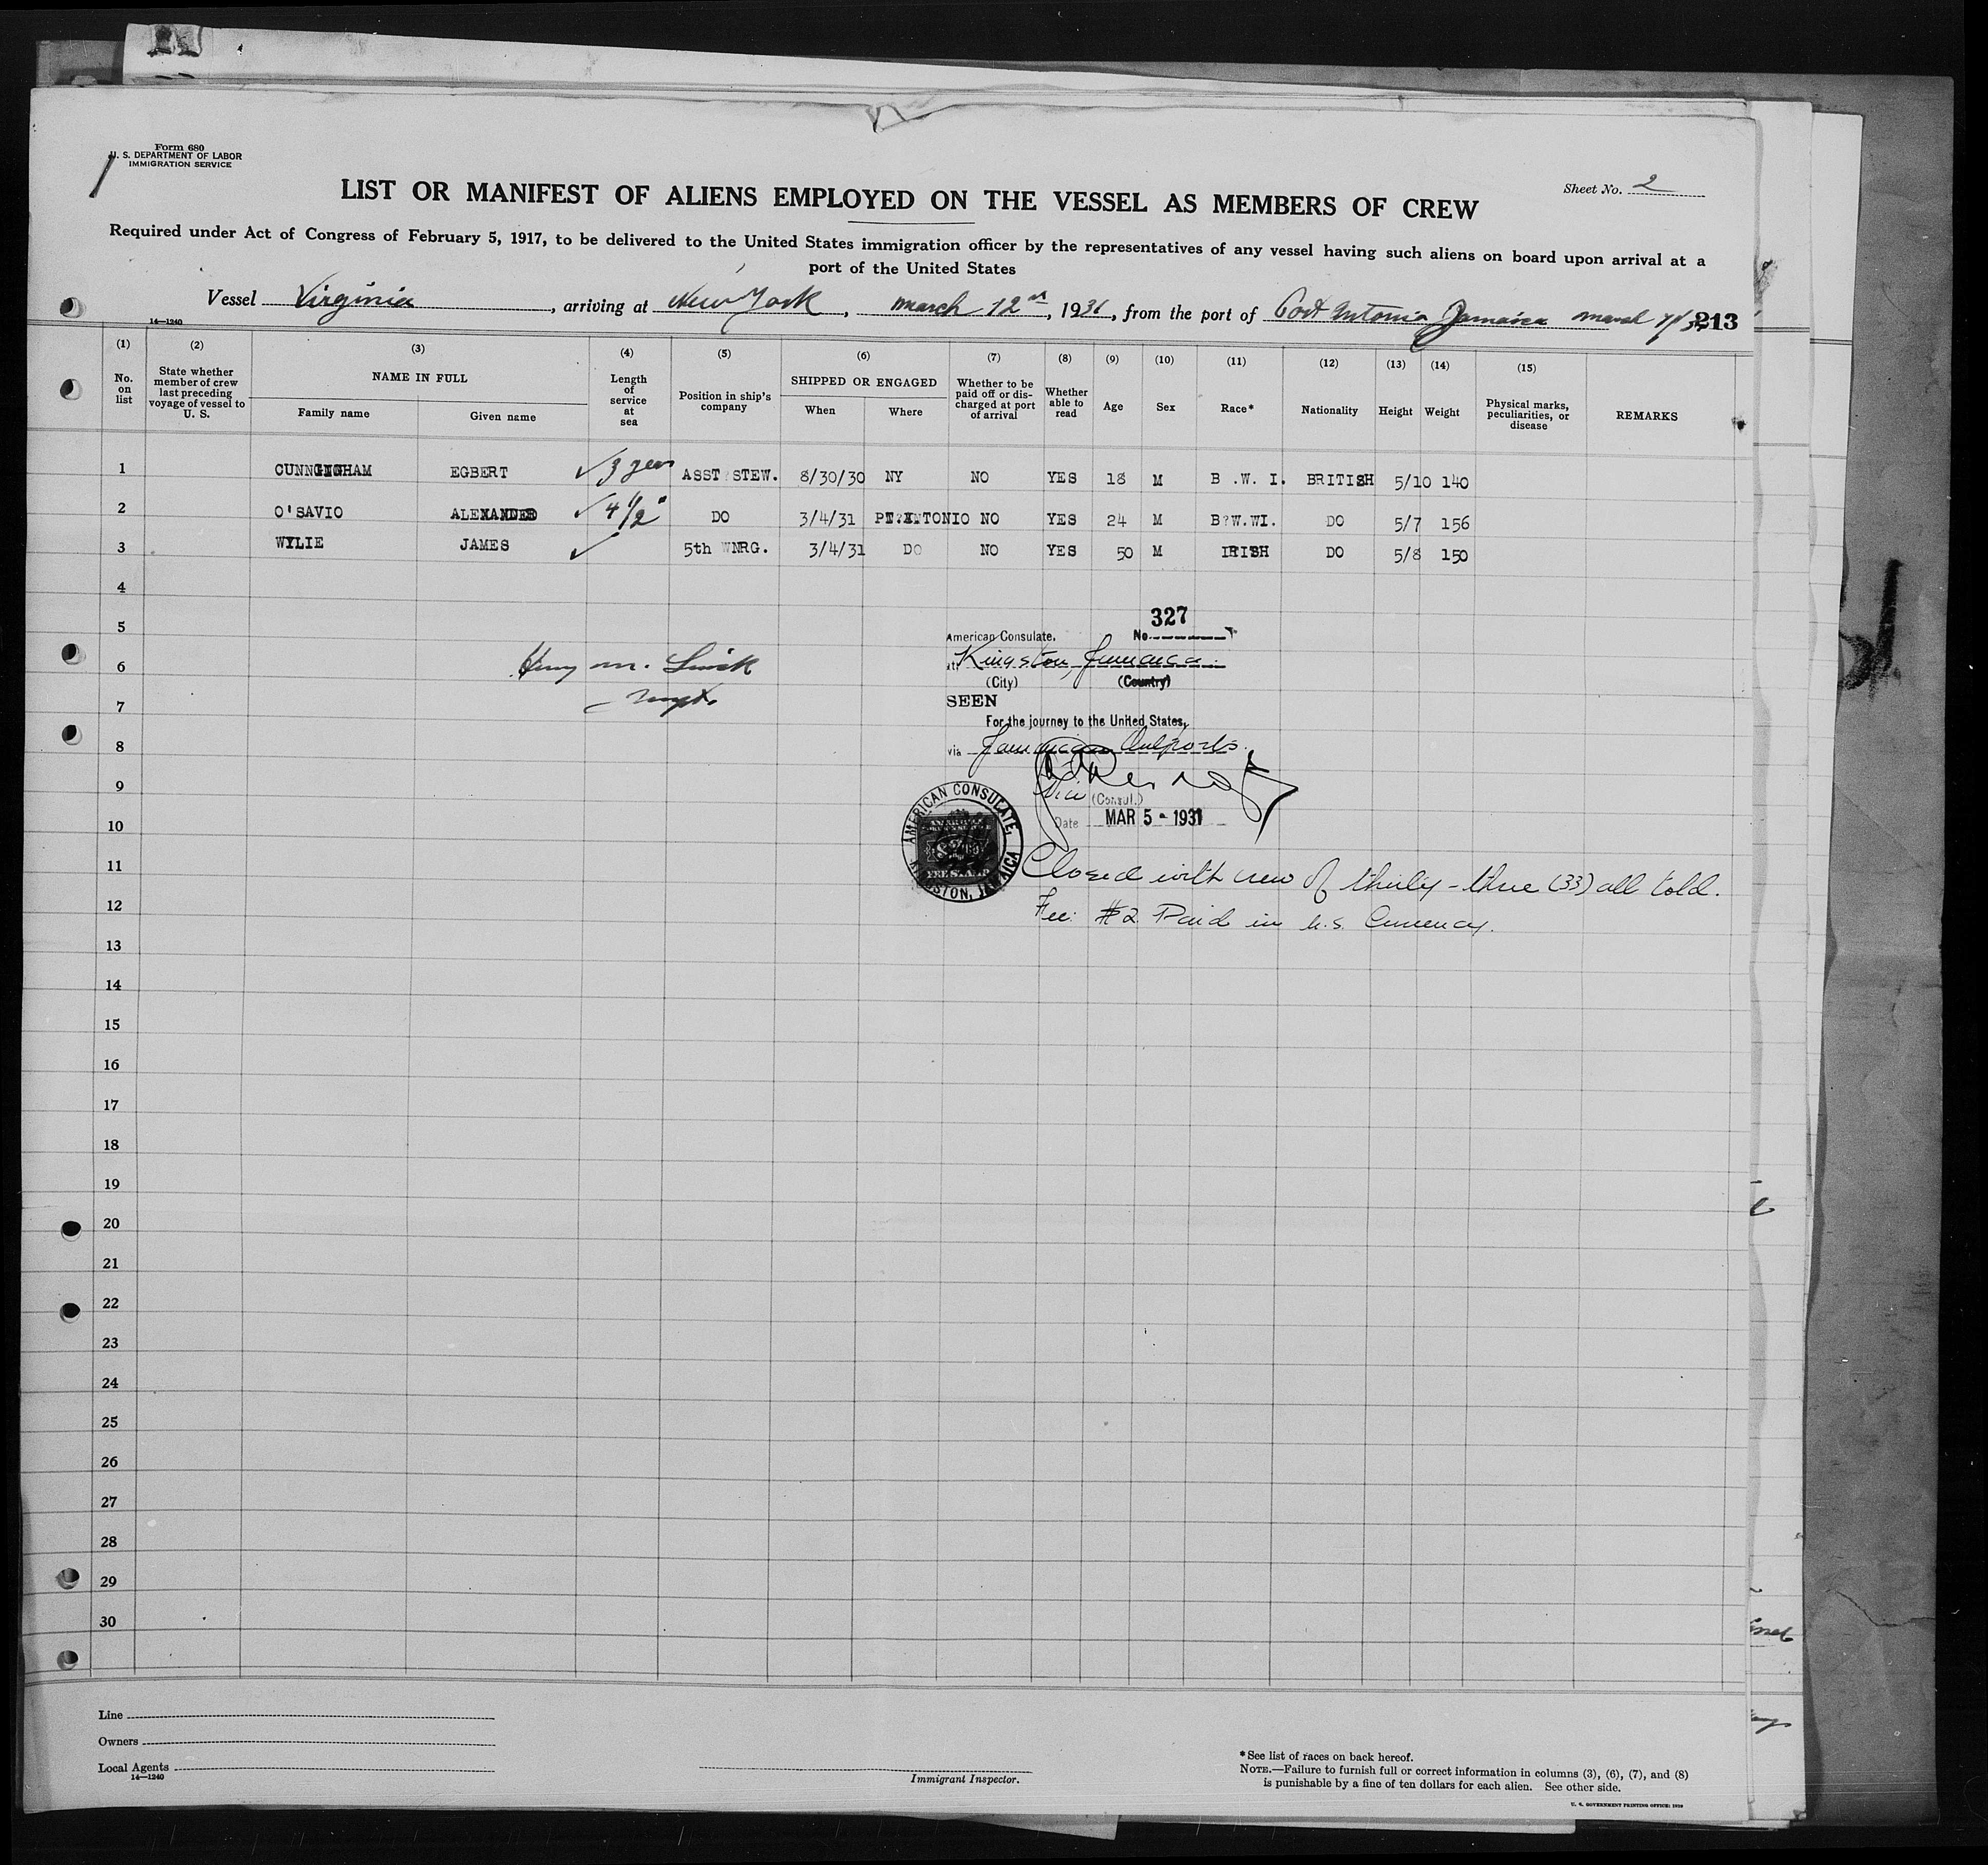 Form 680
U. S. DEPARTMENT OF LABOR
IMMIGRATION SERVICE
Sheet No. 2
LIST OR MANIFEST OF ALIENS EMPLOYED ON THE VESSEL AS MEMBERS OF CREW
Required under Act of Congress of February 5, 1917, to be delivered to the United States immigration officer by the representatives of any vessel having such aliens on board upon arrival at a
port of the United States
Vessel Virginia, arriving at New York, March 12th, 1931, from the port of Port Antonio Jamaica March 7/31
213
14—1240
(1) (2) (3) (4) (5) (6) (7) (8) (9) (10) (11) (12) (13) (14) (15)
No. on list
State whether member of crew last preceding voyage of vessel to U. S.
NAME IN FULL
Family name
Given name
Length of service at sea
Position in ship's company
SHIPPED OR ENGAGED
When
Where
Whether to be paid off or discharged at port of arrival
Whether able to read
Age
Sex
Race*
Nationality
Height
Weight
Physical marks, peculiarities, or disease
REMARKS
1 CUNNGINGHAM EGBERT ✓ 3 years ASST STEW. 8/30/30 NY NO YES 18 M B .W. I. BRITISH 5/10 140
2 O'SAVIO ALEXANDER ✓ 4 1/2 " DO 3/4/31 PT.ANTONIO NO YES 24 M B?W.WI. DO 5/7 156
3 WYLIE JAMES ✓ 5th WNRG. 3/4/31 DO NO YES 50 M IRISH DO 5/8 150
4
5
6
7
8
9
10
11
12
13
14
15
16
17
18
19
20
21
22
23
24
25
26
27
28
29
30
327
American Consulate, No.
at Kingston, Jamaica.
(City) (Country)
SEEN
For the journey to the United States,
via Jamaican Outports.
Vice (Consul.)
Date MAR 5 - 1931
AMERICAN CONSULATE,
KINGSTON, JAMAICA
FEE STAMP
Closed with crew of thirty-three (33) all told.
Fee: $2 Paid in U.S. Currency.
Line
Owners
Local Agents
14—1240
Immigrant Inspector.
*See list of races on back hereof.
NOTE.—Failure to furnish full or correct information in columns (3), (6), (7), and (8)
is punishable by a fine of ten dollars for each alien. See other side.